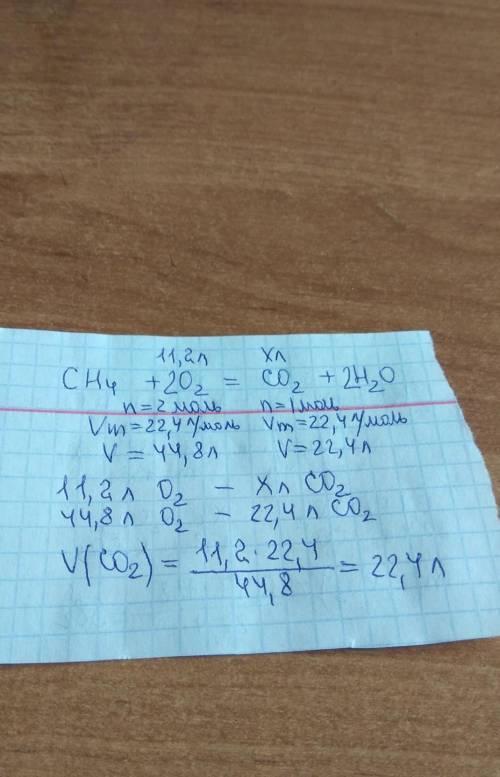 11,2л Xл
CH₄ + 2O₂ = CO₂ + 2H₂O
n=2моль n=1моль
Vm=22,4л/моль Vm=22,4л/моль
V = 44,8л V=22,4л
11,2л O₂ – Xл CO₂
44,8л O₂ – 22,4л CO₂
V(CO₂) = 11,2·22,4 / 44,8 = 22,4л